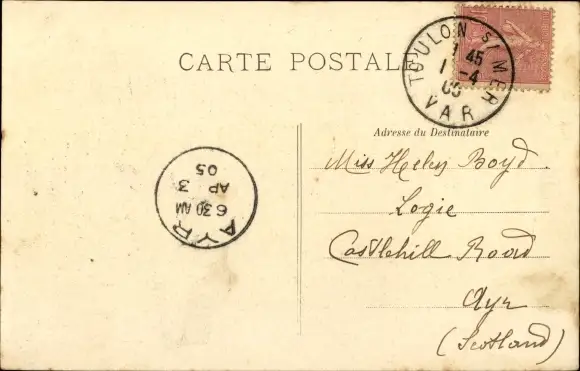 CARTE POSTALE
TOULON S/MER
7 45
1 -4
05
VAR
Adresse du Destinataire
Miss Helen Boyd.
Logie
Castlehill Road
Ayr
(Scotland)
AYR
6 30 AM
AP 3
05